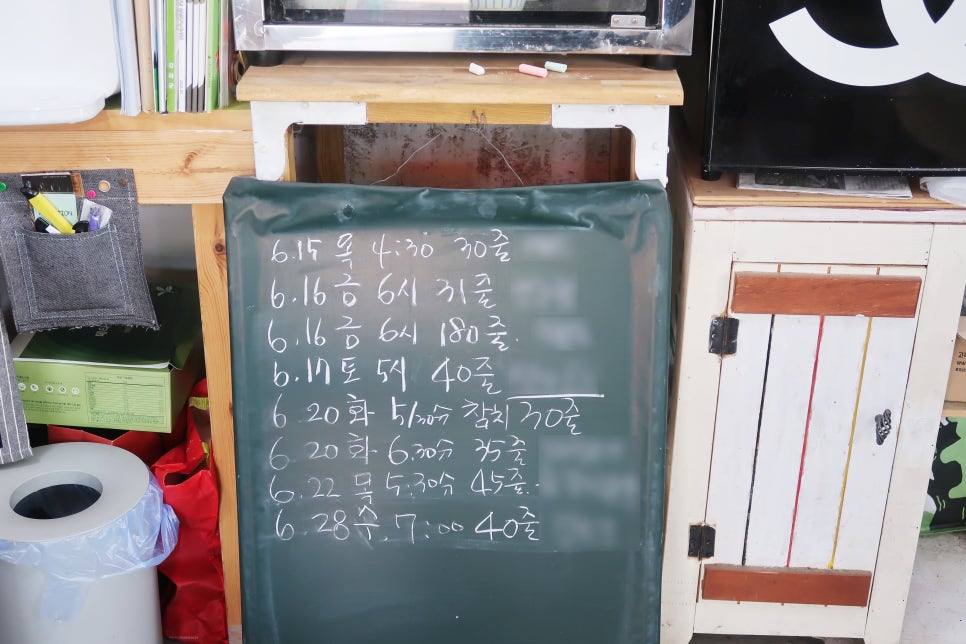 6.15 목 4:30 30줄
6.16 금 6시 31줄
6.16 금 6시 180줄.
6.17 토 5시 40줄
6.20 화 5/30分 참치 30줄
6.20 화 6.30分 35줄
6.22 목 5:30分 45줄.
6.28 수. 7:00 40줄